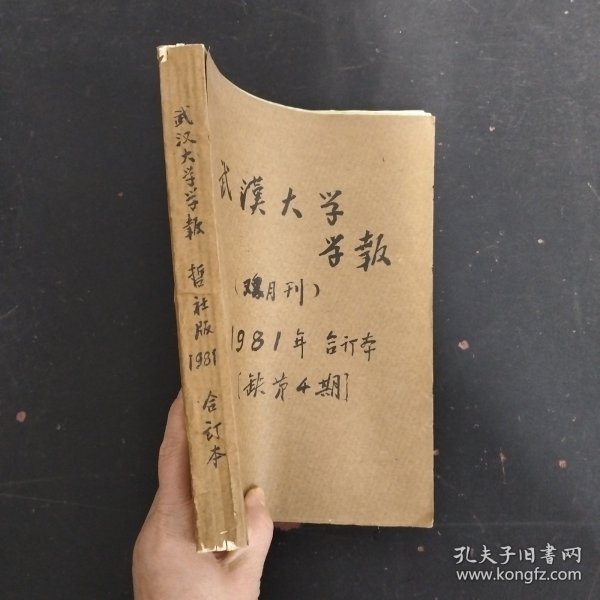 武汉大学学报 哲社版 1981 合订本
武漢大学
学報
(双月刊)
1981年 合订本
[缺第4期]
孔夫子旧書网
www.kongfz.com